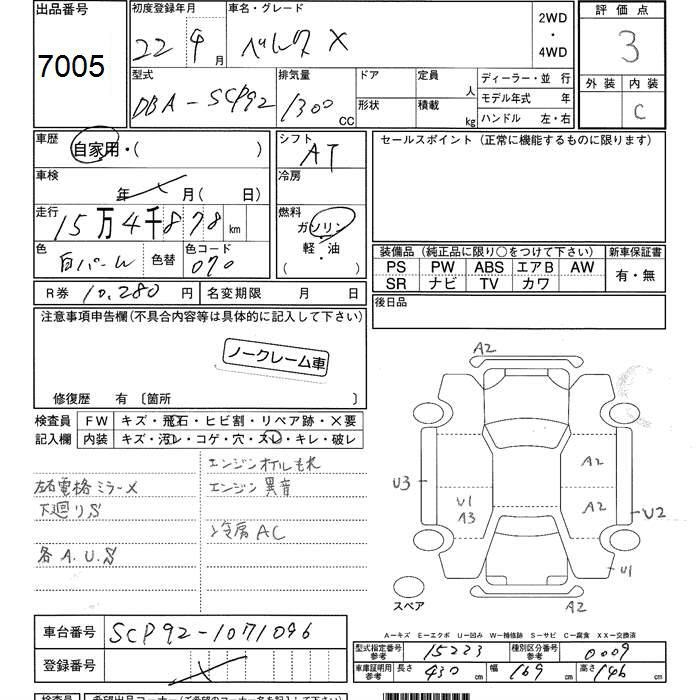 出品番号 初度登録年月 車名・グレード 2WD・4WD 評価点
7005 22年9月 ベルタ X 3
型式 排気量 ドア 定員 人 ディーラー・並行 外装 内装
DBA-SCP92 1300 CC 形状 積載 kg モデル年式 年 C
ハンドル 左・右
車歴 自家用・( ) シフト AT セールスポイント (正常に機能するものに限ります)
車検 年 月 ( 日) 冷房
走行 15万4千878km 燃料 ガソリン・軽・油 ( )
色 白パール 色替 色コード 070
装備品 (純正品に限り○をつけて下さい) 新車保証書
PS PW ABS エアB AW 有・無
SR ナビ TV カワ
R券 10,280円 名変期限 月 日 後日品
注意事項申告欄(不具合内容等は具体的に記入して下さい)
ノークレーム車
修復歴 有 〔箇所 〕
検査員 FW キズ・飛石・ヒビ割・リペア跡・X要
記入欄 内装 キズ・汚レ・コゲ・穴・スレ・キレ・破レ
エンジンオイルもれ
左右電格ミラーX エンジン異音
下廻りS
冷房AC
各A.U.S
A2
A2
U3
U1
A3
A2
U2
U1
スペア
A2
A-キズ E-エクボ U-凹み W-補修跡 S-サビ C-腐食 XX-交換済
車台番号 SCP92-1071096
型式指定番号 参考 15223 種別区分番号 参考 0009
登録番号
車庫証明用 参考 長さ 430cm 幅 169cm 高さ 146cm
検査員 希望出品コーナー(ご希望のコーナー名を記入して下さい)